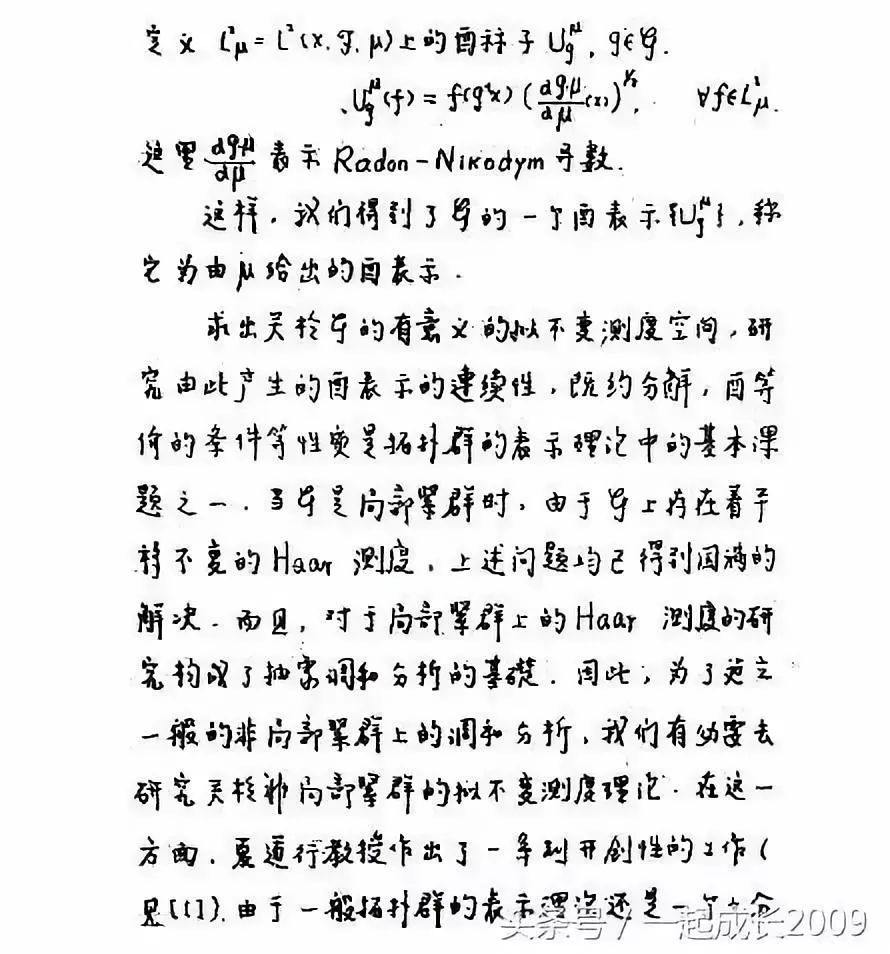 定义 L²μ = L²(X, 𝔉, μ)上的酉算子 U_g^μ, g∈𝒢.
U_g^μ(f) = f(g⁻¹x) (dgμ/dμ (x))^{1/2}, ∀f∈L²μ.
这里 dgμ/dμ 表示 Radon-Nikodym 导数.
这样, 我们得到了𝒢的一个酉表示{U_g^μ}, 称
它为由μ给出的酉表示.
求出关于𝒢的有意义的拟不变测度空间, 研
究由此产生的酉表示的連续性, 既约分解, 酉等
价的条件等性质是拓扑群的表示理论中的基本课
题之一. 当𝒢是局部紧群时, 由于𝒢上存在着平
移不变的 Haar 测度, 上述问题均已得到圆满的
解决. 而且, 对于局部紧群上的 Haar 测度的研
究构成了抽象调和分析的基礎. 因此, 为了建立
一般的非局部紧群上的调和分析, 我们有必要去
研究关于非局部紧群的拟不变测度理论. 在这一
方面, 夏道行教授作出了一系列开创性的工作(
见[1]). 由于一般拓扑群的表示理论还是一个十分
头条号 / 一起成长2009